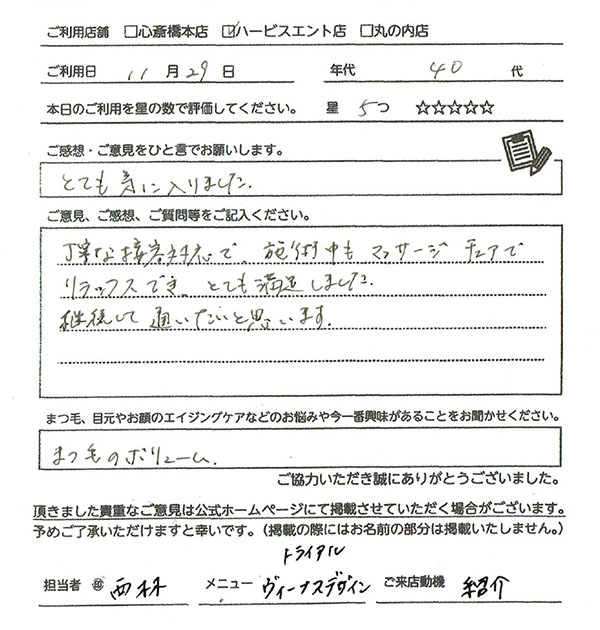 ご利用店舗 □心斎橋本店 ☑ハービスエント店 □丸の内店
ご利用日 11月29日 年代 40代
本日のご利用を星の数で評価してください。 星 5つ ☆☆☆☆☆
ご感想・ご意見をひと言でお願いします。
とても気に入りました.
ご意見、ご感想、ご質問等をご記入ください。
丁寧な接客対応で。施術中もマッサージチェアで
リラックスでき、とても満足しました.
継続して通いたいと思います.
まつ毛、目元やお顔のエイジングケアなどのお悩みや今一番興味があることをお聞かせください。
まつ毛のボリューム.
ご協力いただき誠にありがとうございました。
頂きました貴重なご意見は公式ホームページにて掲載させていただく場合がございます。
予めご了承いただけますと幸いです。(掲載の際にはお名前の部分は掲載いたしません。)
トライアル
担当者 ㊞ 西林 メニュー ヴィーナスデザイン ご来店動機 紹介